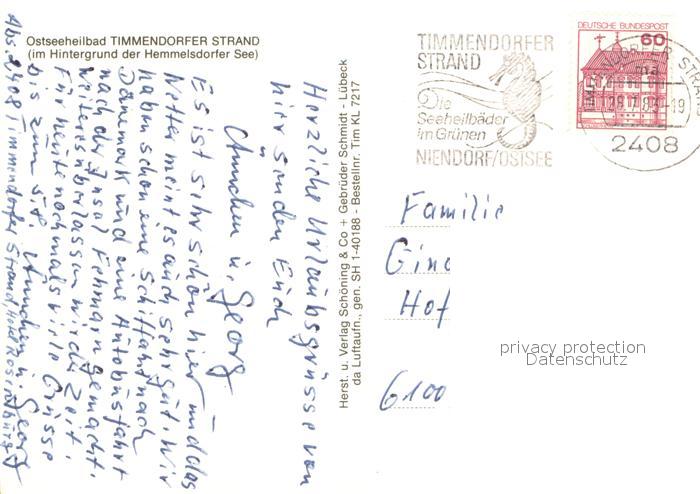 Ostseeheilbad TIMMENDORFER STRAND
(im Hintergrund der Hemmelsdorfer See)
Herzliche Urlaubsgrüsse von
hier senden Euch
Ännchen u. Georg
Es ist sehr schön hier und das
Wetter meint es auch sehr gut. Wir
haben schon eine Schiffahrt nach
Dänemark und eine Autobusfahrt
nach der Insel Fehmarn gemacht.
Weiteres überlassen wir der Zeit.
Für heute nochmals viele Grüsse
bis zum Ännchen u. Georg
Abs. 2408 Timmendorfer Strand, Hotel
Herst. u. Verlag Schöning & Co + Gebrüder Schmidt - Lübeck
da Luftaufn., gen. SH 1-40188 - Bestellnr. Tim KL 7217
TIMMENDORFER
STRAND
Die
Seeheilbäder
im Grünen
NIENDORF/OSTSEE
DEUTSCHE BUNDESPOST
60
TIMMENDORFER STRAND
ma
-19
2408
Familie
Gin
Hof
6100
privacy protection
Datenschutz